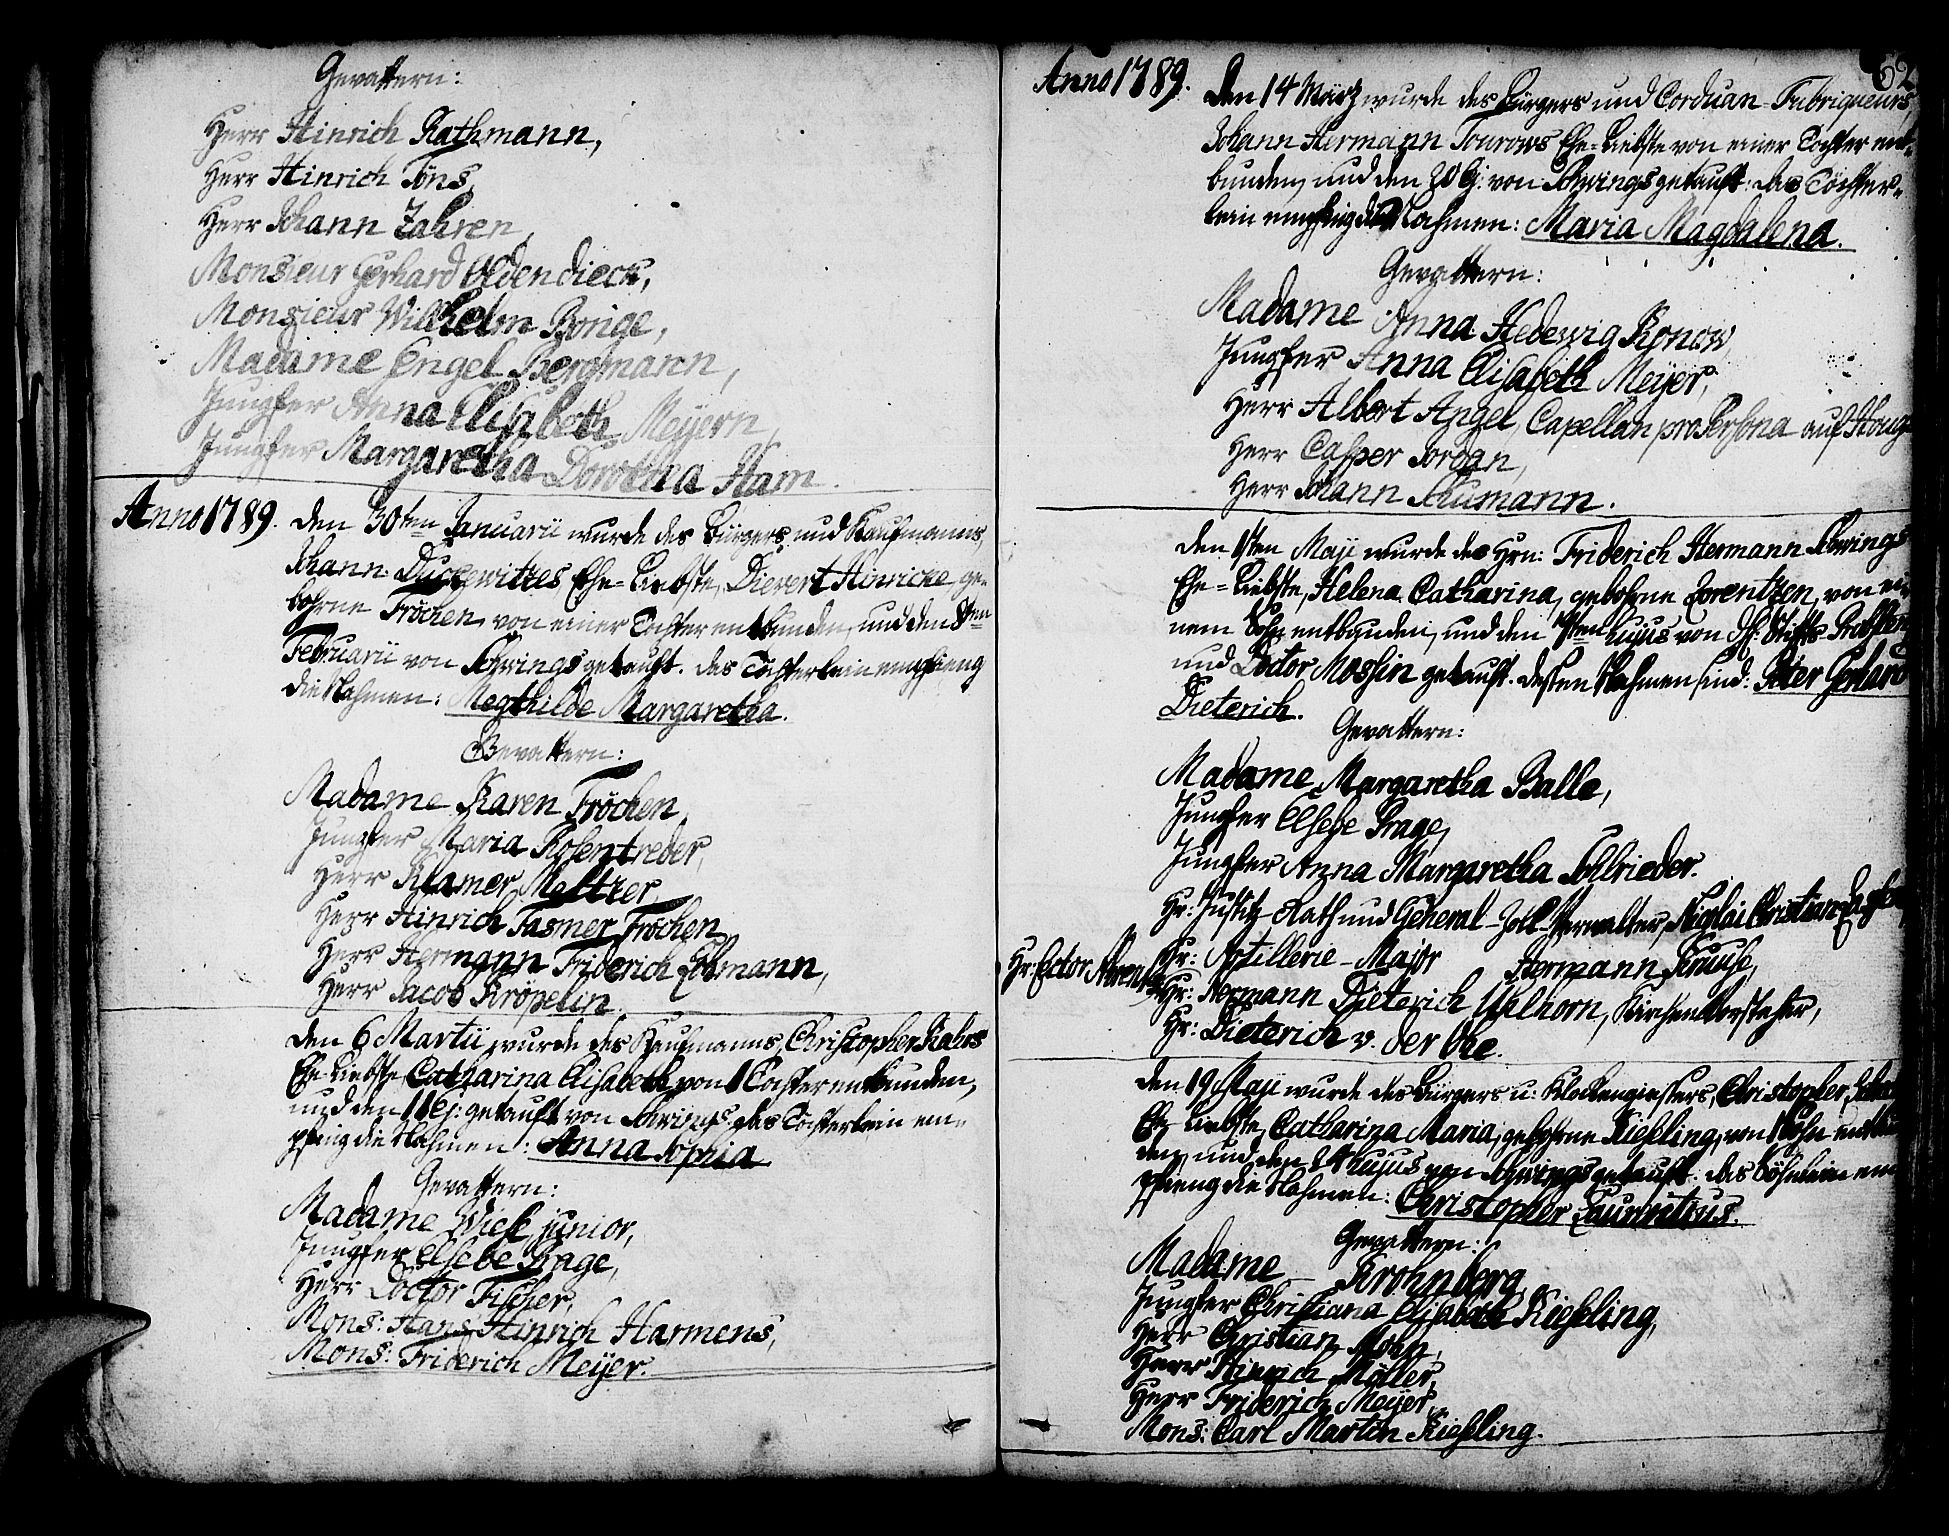 Gevattern:
Herr Hinrich Rathmann,
Herr Hinrich Töns,
Herr Johann Zahren,
Monsieur Gerhard Oldendieck,
Monsieur Wilhelm Bonige,
Madame Engel Bergmann,
Jungfer Anna Elisabeth Meyern,
Jungfer Margaretha Dorothea Ham.
Anno 1789. Den 30ten Januarii wurde des Bürgers und Kaufmanns,
Johann Duckewitzes Ehe-Liebste, Dievert Hinricke, ge-
bohrne Fröchen, von einer Tochter entbunden, und den
Februarii von Schwings getauft. Das Töchterlein empfieng
die Nahmen: Megthilde Margaretha.
Gevattern:
Madame Karen Fröchen,
Jungfer Maria Rosentreder,
Herr Kramer Meltzer,
Herr Hinrich Fasmer Fröchen,
Herr Hermann Friderich Lohmann,
Herr Jacob Kröpelin.
Den 6 Martii wurde des Kaufmanns, Christopher Rahrs
Ehe-Liebste, Catharina Elisabeth, von 1 Tochter entbunden,
und den 11 ej: getauft von Schwings. das Töchterlein em-
pfing die Nahmen: Anna Sophia.
Gevattern:
Madame Wiese junior,
Jungfer Elsebe Krage,
Herr Doctor Fischer,
Mons: Hans Hinrich Harmens,
Mons: Friderich Meyer.
62
Anno 1789. Den 14 März wurde des Bürgers und Corduan-Fabriqueurs,
Johann Hermann Tourows Ehe-Liebste von einer Tochter ent-
bunden, und den 20 ej. von Schwings getauft: das Töchter-
lein empfing die Nahmen: Maria Magdalena.
Gevattern:
Madame Anna Hedewig Ronow,
Jungfer Anna Elisabeth Meyer,
Herr Albert Angel, Capellan pro Persona auf
Herr Casper Jordan,
Herr Johann Schumann.
Den 1sten Maji wurde des Hrn: Friderich Hermann Schwings
Ehe-Liebste, Helena Catharina, gebohrne Lorentzen, von ei-
nem Sohn entbunden, und den 7ten hujus von Stifts Probsten
und Doctor Massin getauft. dessen Nahmen sind: Peter Gerhard
Dieterich.
Gevattern:
Madame Margaretha Balle,
Jungfer Elsebe Krage,
Jungfer Anna Margaretha Schlrieder.
Hr: Justitz-Rath und General-Zoll-Verwalter, Nicolai Christian
Hr: Artillerie-Major Hermann Kruuse,
Hr: Hermann Dieterich Uhlhorn, Kirchen Vorsteher,
Hr: Dieterich v. der Ohe.
Den 19 Maji wurde des Bürgers u: Klockengiessers, Christopher
Ehe-Liebste, Catharina Maria, gebohrne Kiesling, von 1 Sohn entbun
den, und den 24 hujus von Schwings getauft. das Söhnlein em
pfieng die Nahmen: Christopher Laurentius.
Gevattern:
Madame Krohnberg,
Jungfer Christiana Elisabeth Kiesling,
Herr Christian Mohn,
Herr Hinrich Möller,
Herr Friderich Meyer,
Mons: Carl Martin Kiesling.